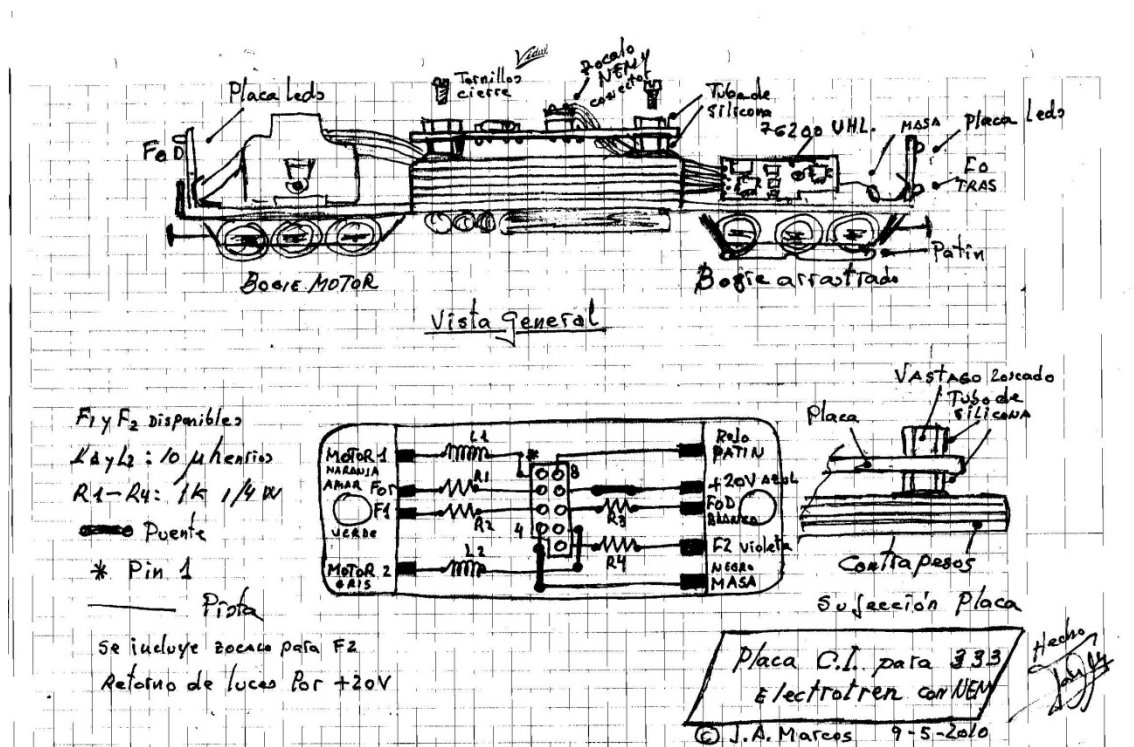 Vidal
Placa leds
Tornillos
cierre
Zocalo
NEM y
conector
Tubo de
silicona
76200 UHL.
MASA
Placa Leds
FoD
Fo
TRAS
Patin
BOGIE MOTOR
Bogie arrastrado
Vista General
F1 y F2 Disponibles
L1 y L2 : 10 µhenrios
R1-R4: 1K 1/4 W
Puente
* Pin 1
Pista
Se incluye zocalo para F2
Retorno de luces Por +20V
MOTOR 1
NARANJA
AMAR FoT
F1
VERDE
MOTOR 2
GRIS
L1
R1
R2
L2
*
8
4
R3
R4
Rojo
PATIN
+20V AZUL
FoD
BLANCO
F2 Violeta
NEGRO
MASA
VASTAGO Roscado
Placa
Tubo de
SILICONA
Contrapesos
Sujección Placa
Placa C.I. para 333
Electrotren con NEM
Hecho
© J.A. Marcos 9-5-2010